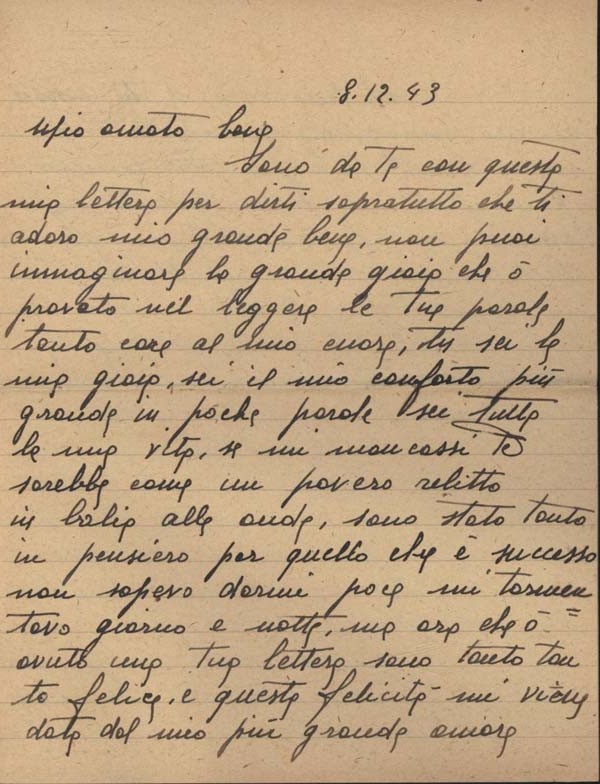 8.12.43
Mio amato bene
Sono da te con questa
mia lettera per dirti sopratutto che ti
adoro mio grande bene, non puoi
immaginare la grande gioia che ò
provato nel leggere le tue parole
tanto care al mio cuore, tu sei la
mia gioia, sei il mio conforto più
grande in poche parole sei tutta
la mia vita, se mi mancassi te
sarebbe come un povero relitto
in balia alle onde, sono stato tanto
in pensiero per quello che è successo
non sapevo darmi pace mi tormen=
tavo giorno e notte, ma ora che ò
avuto una tua lettera sono tanto tan
to felice, e questa felicità mi viene
data dal mio più grande amore